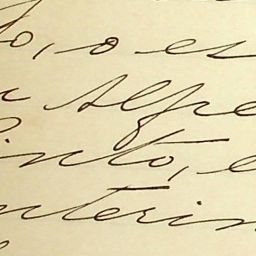 to, o es
a Alfre
Pinto, e
interin